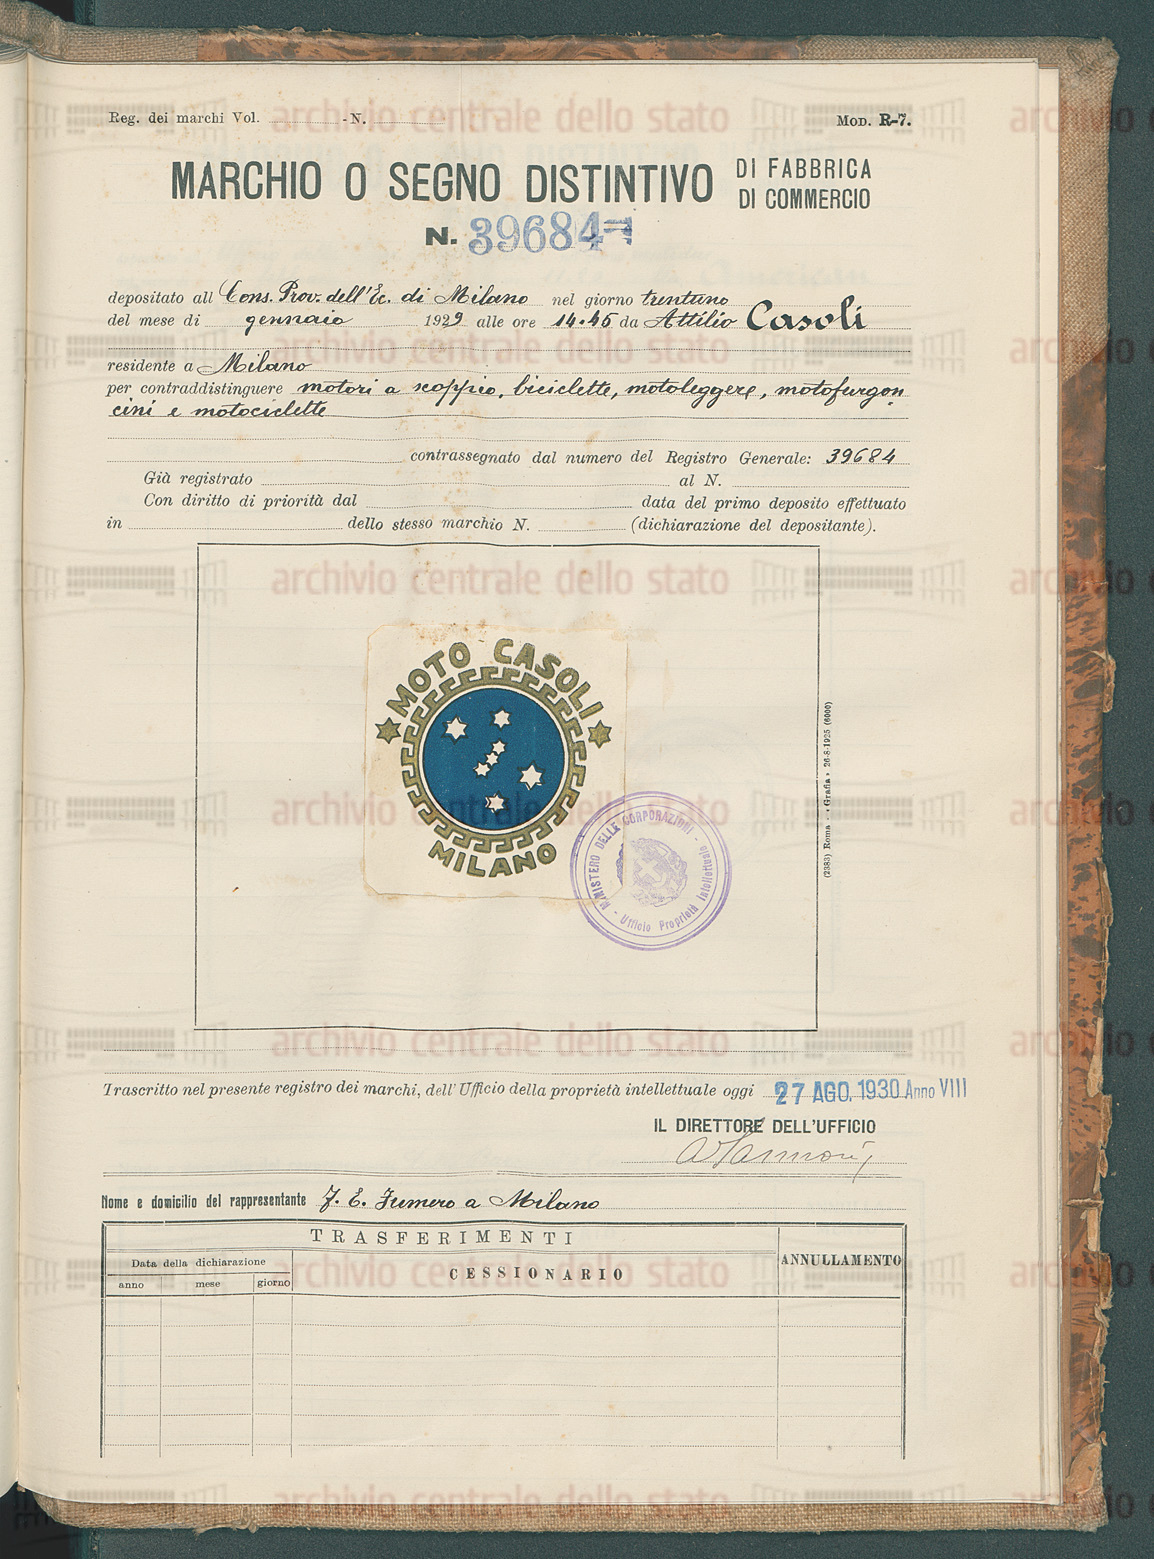 Reg. dei marchi Vol. - N.
MOD. R-7.
MARCHIO O SEGNO DISTINTIVO DI FABBRICA
DI COMMERCIO
N. 39684
depositato all Cons. Prov. dell'Ec. di Milano nel giorno trentuno
del mese di gennaio 1929 alle ore 14.45 da Attilio Casoli
residente a Milano
per contraddistinguere motori a scoppio, biciclette, motoleggere, motofurgon
cini e motociclette
contrassegnato dal numero del Registro Generale: 39684
Già registrato al N.
Con diritto di priorità dal data del primo deposito effettuato
in dello stesso marchio N. (dichiarazione del depositante).
MOTO CASOLI
MILANO
MINISTERO DELLE CORPORAZIONI
- Ufficio Proprietà Intellettuale -
(2383) Roma - Grafia - 26-8-1925 (6000)
Trascritto nel presente registro dei marchi, dell'Ufficio della proprietà intellettuale oggi 27 AGO. 1930 Anno VIII
IL DIRETTORE DELL'UFFICIO
Nome e domicilio del rappresentante J. E. Fumero a Milano
TRASFERIMENTI
Data della dichiarazione
CESSIONARIO
ANNULLAMENTO
anno mese giorno
archivio centrale dello stato